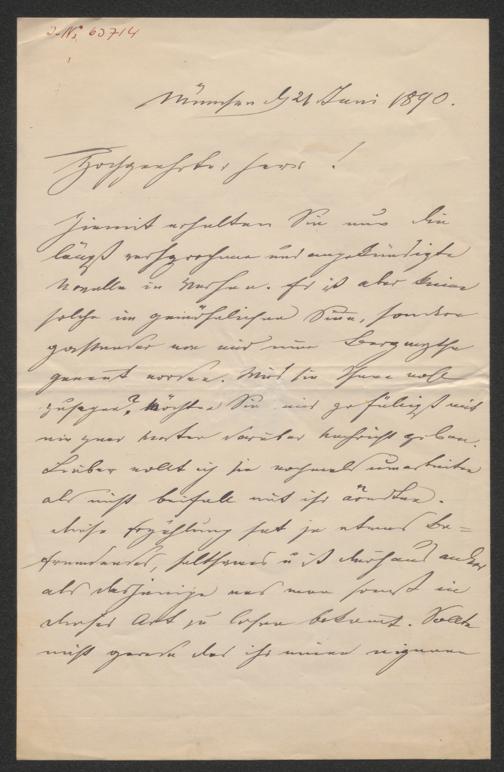 I.N. 63714
München d 21 Juni 1890.
Hochgeehrter Herr!
Hiemit erhalten Sie nun die
längst versprochene und angekündigte
Novelle in Versen. Es ist aber keine
solche im gewöhnlichen Sinn, sondern
passender von mir eine Bergmythe
genannt worden. Wird sie Ihnen wohl
zusagen? Möchten Sie mir gefälligst mit
ein paar Worten darüber Nachricht geben.
Lieber wollt ich sie nochmals umarbeiten
als nicht Beifall mit ihr ärndten.
Diese Erzählung hat ja etwas Be=
fremdendes, seltsames u ist durchaus anders
als dasjenige was man sonst in
dieser Art zu lesen bekommt. Sollte
nicht gerade das ihr einen eigenen